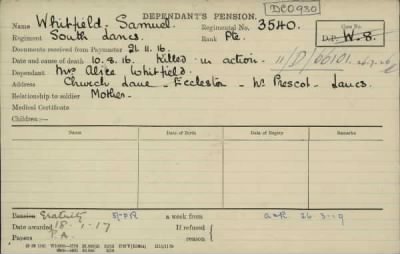 DEPENDANT'S PENSION.
DCO930
Name Whitfield. Samuel. Regimental No. 3540.
Case No.
Regiment South Lancs. Rank Pte.
D.P. W.8.
Documents received from Paymaster 21.11.16.
Date and cause of death 10.8.16. Killed in action. 11/D/66101. 26.3.20
Dependant Mrs Alice Whitfield.
Address Church Lane - Eccleston - Nr Prescot - Lancs.
Relationship to soldier Mother.
Medical Certificate
Children:—
Name. Date of Birth. Date of Expiry. Remarks.
Pension Gratuity a week from 26-3-19
Date awarded 18-1-17 If refused
Papers P.A. reason